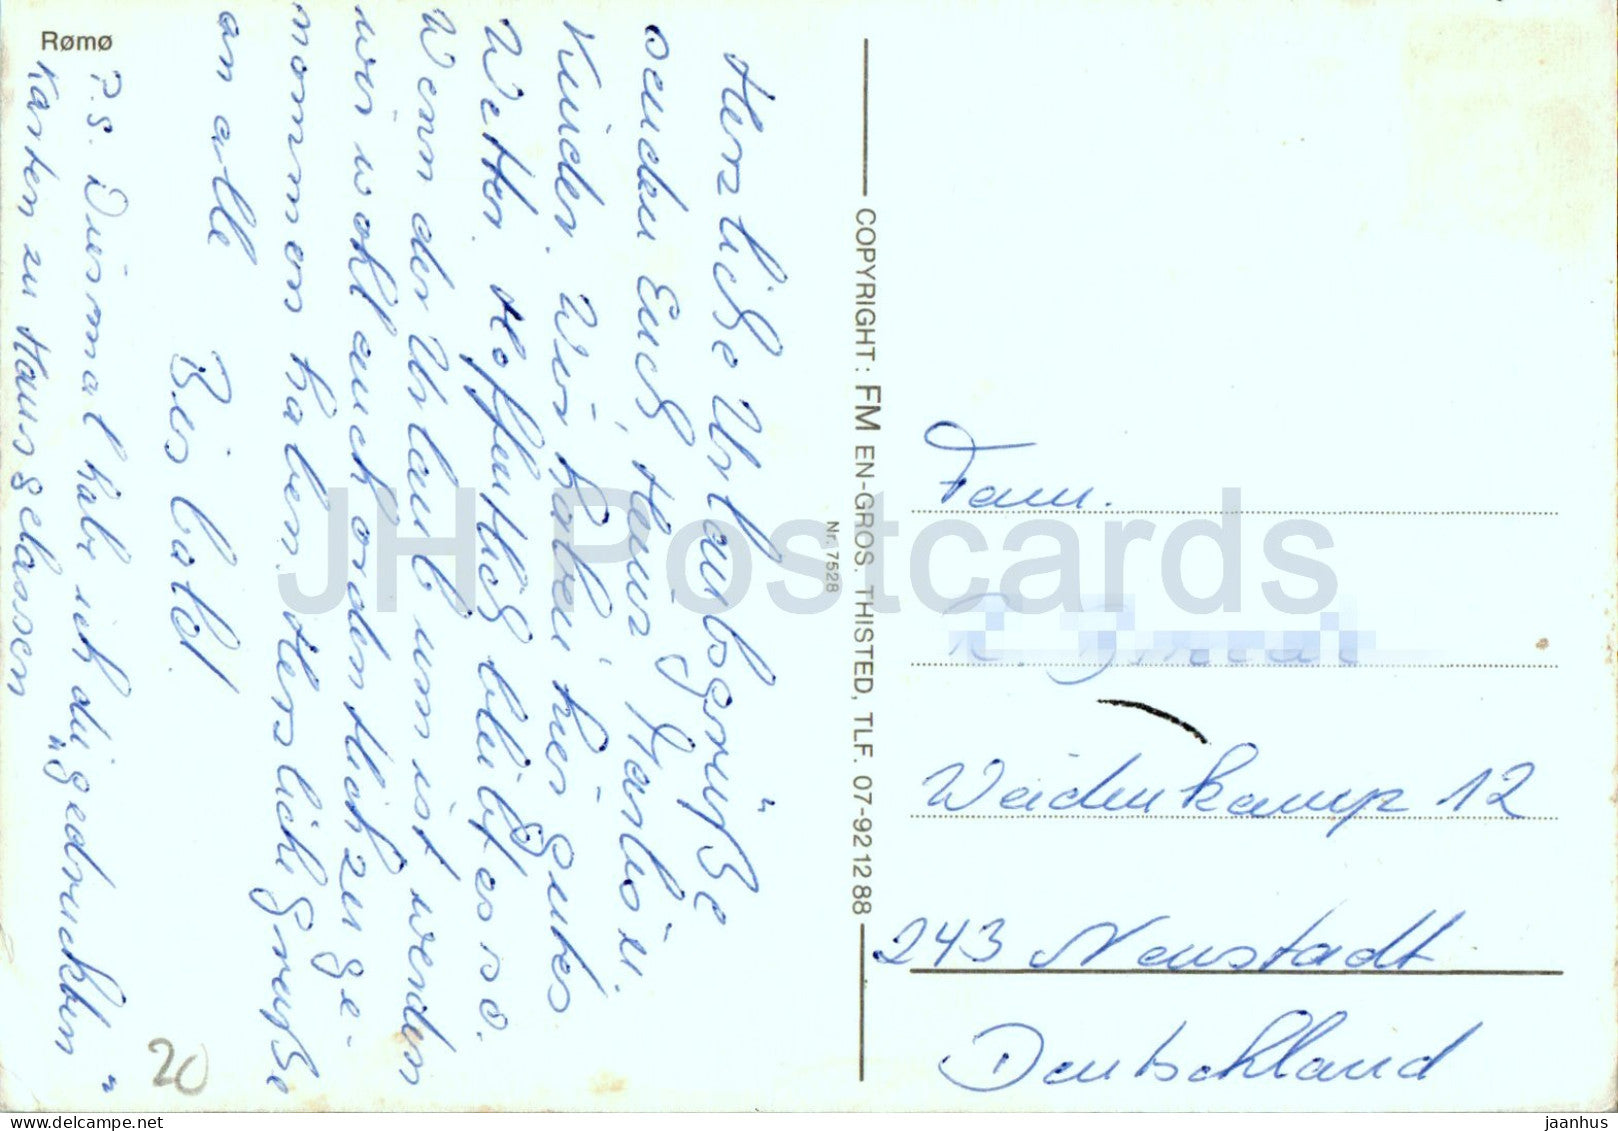 Rømø
Herzliche Urlaubsgrüße
senden Euch, Heinz, Marlis u.
Kinder. Wir haben hier gutes
Wetter. Hoffentlich bleibt es so.
Wenn der Urlaub um ist werden
wir wohl auch ordentlich zu ge-
nommen haben. Herzliche Grüße
an alle
Bis bald.
P.S. Diesmal habe ich die „gedruckten"
Karten zu Haus gelassen
20
COPYRIGHT: FM EN-GROS. THISTED, TLF. 07-92 12 88
Nr. 7528
Fam.
Weidenkamp 12
243 Neustadt
Deutschland
JH Postcards
delcampe.net
jaanhus